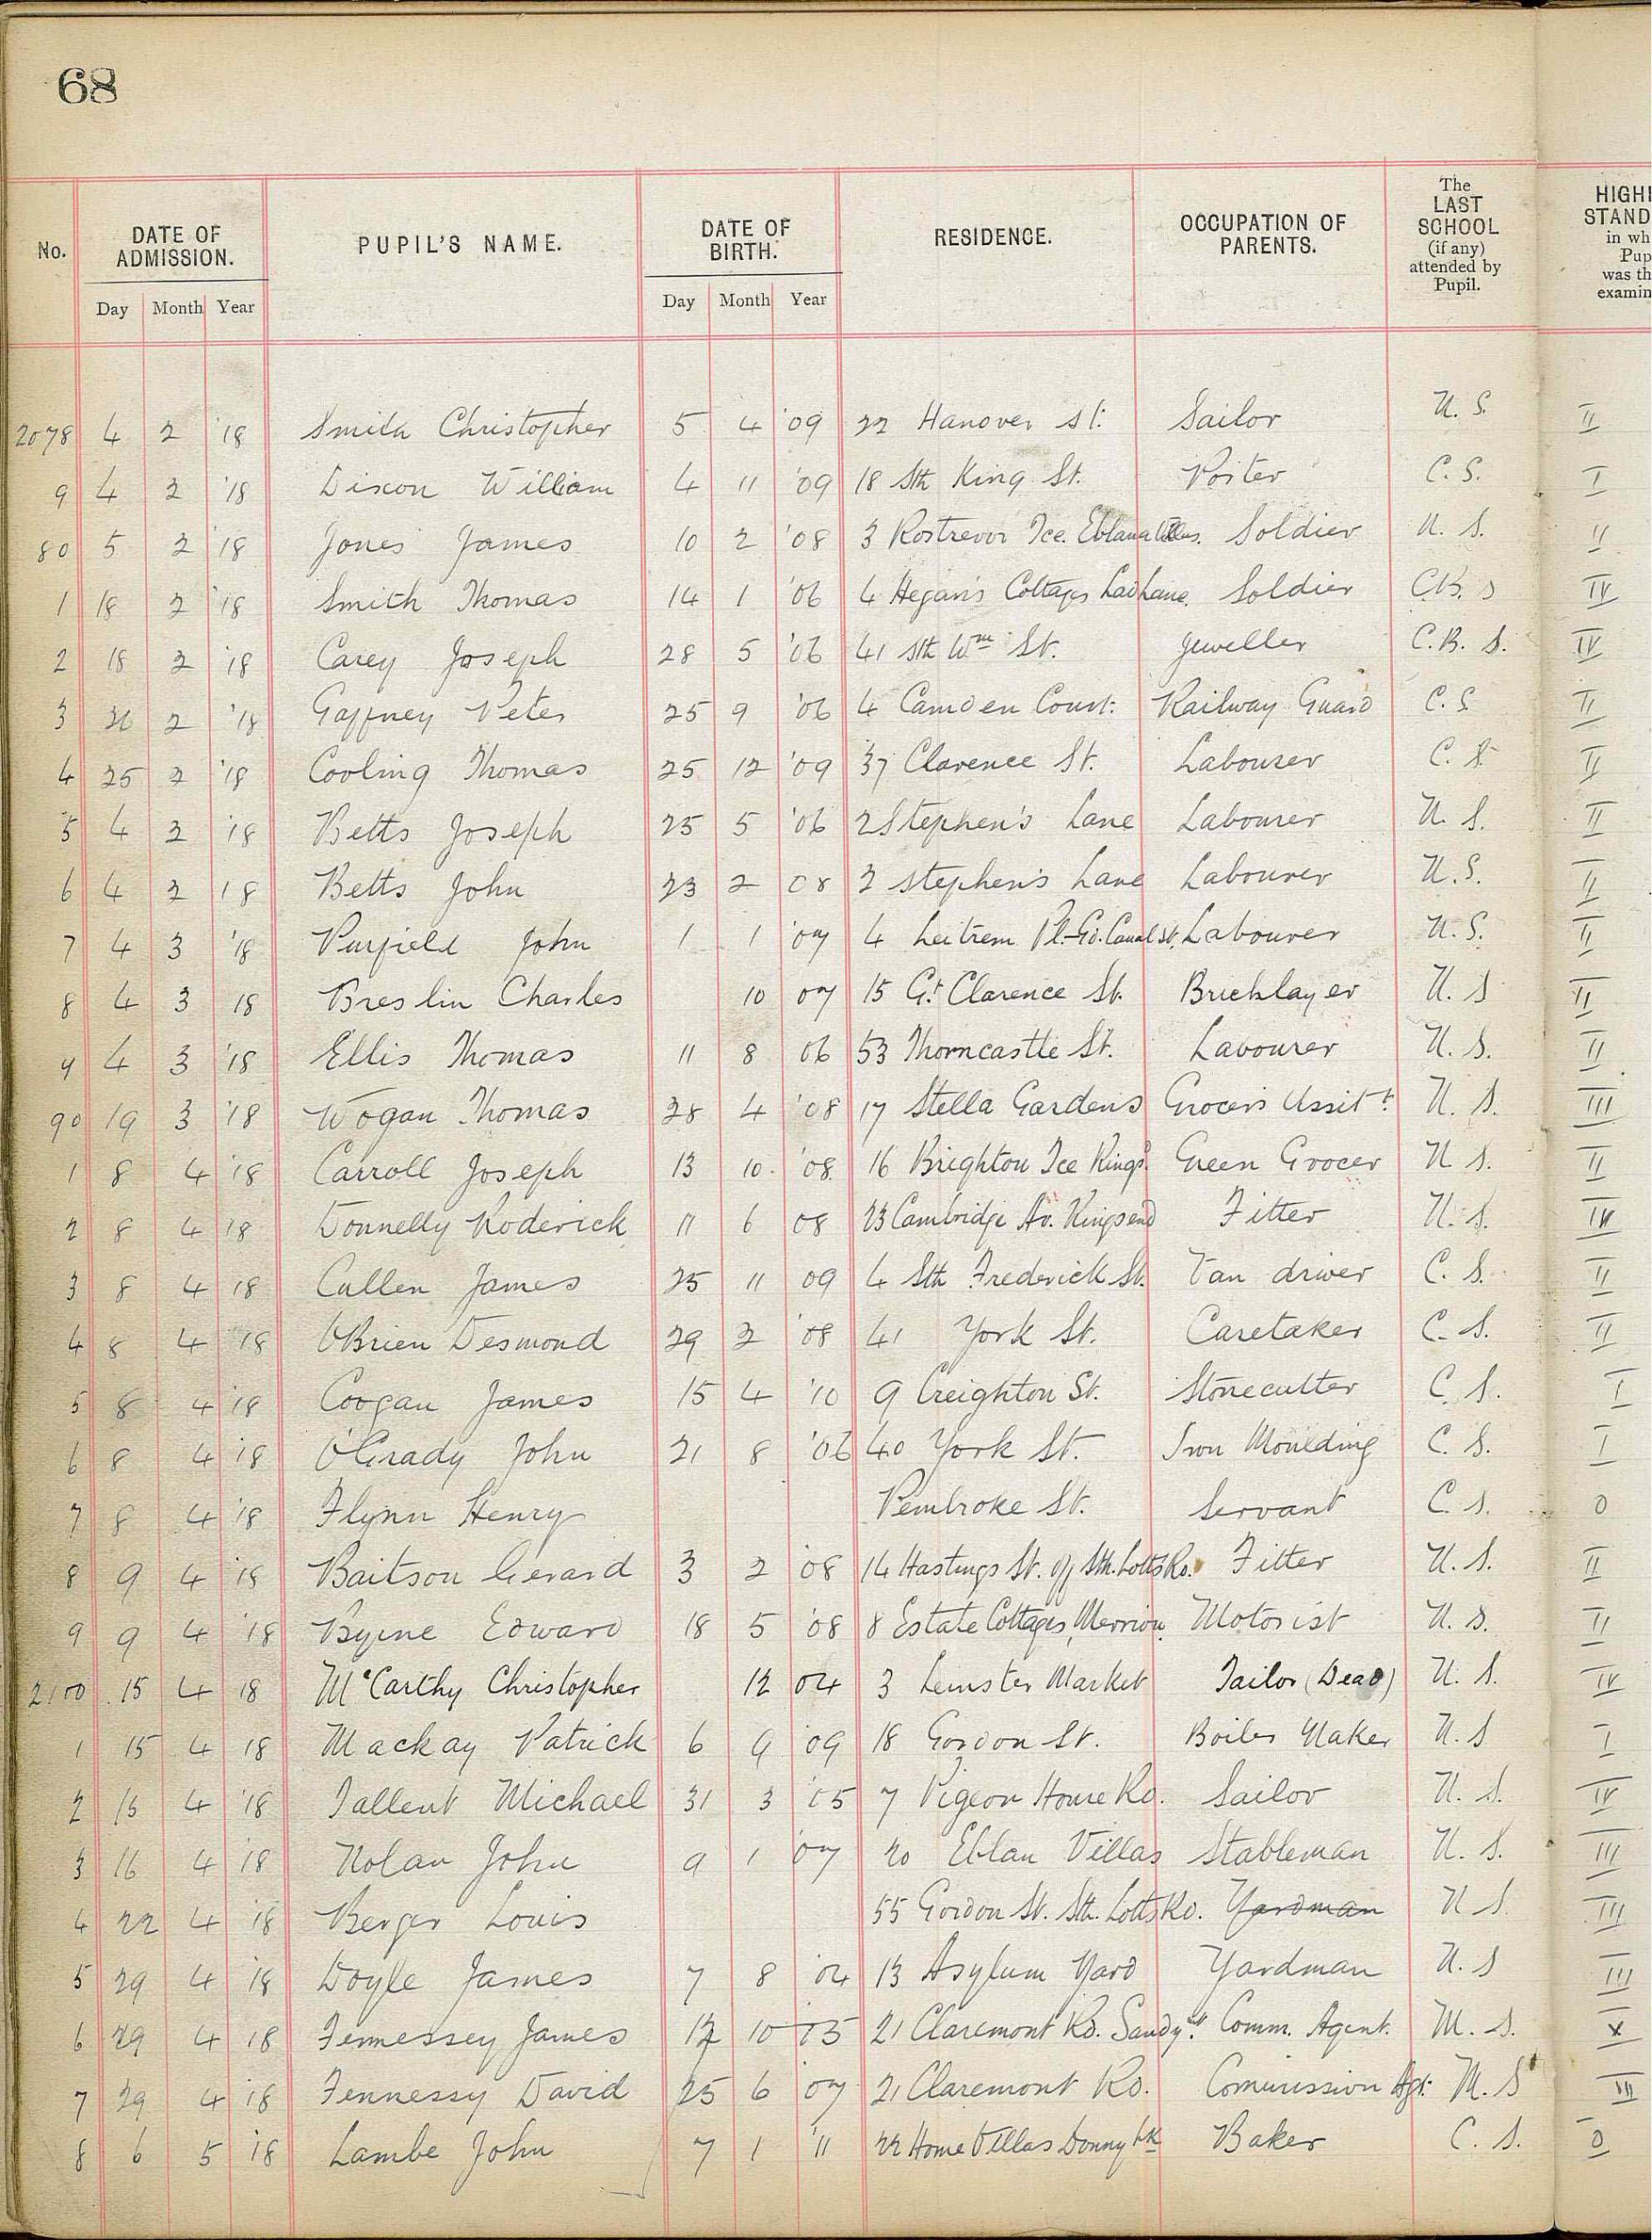 68
No. DATE OF ADMISSION. PUPIL'S NAME. DATE OF BIRTH. RESIDENCE. OCCUPATION OF PARENTS. The LAST SCHOOL (if any) attended by Pupil. HIGH STAND in wh Pup was th examin
Day Month Year Day Month Year
2078 4 2 '18 Smith Christopher 5 4 '09 22 Hanover St. Sailor N. S. II
9 4 2 '18 Dixon William 4 11 '09 18 Sth King St. Porter C. S. I
80 5 2 '18 Jones James 10 2 '08 3 Rostrevor Tce. Eblana Villas. Soldier N. S. II
1 18 2 '18 Smith Thomas 14 1 '06 4 Hegan's Cottages Lad Lane. Soldier C.B. S IV
2 18 2 '18 Carey Joseph 28 5 '06 41 Sth Wm St. Jeweller C.B. S. IV
3 2 '18 Gaffney Peter 25 9 '06 4 Camden Court. Railway Guard C. S II
4 25 2 '18 Cooling Thomas 25 12 '09 37 Clarence St. Labourer C. S II
5 4 2 '18 Betts Joseph 25 5 '06 2 Stephen's Lane Labourer N. S. II
6 4 2 18 Betts John 23 2 08 2 Stephen's Lane Labourer N. S. II
7 4 3 '18 Purfield John 1 1 '07 4 Leitrem Pl.-Gd. Canal St. Labourer N. S. II
8 4 3 18 Breslin Charles 10 07 15 Gt Clarence St. Bricklayer N. S II
9 4 3 '18 Ellis Thomas 11 8 06 53 Thorncastle St. Labourer N. S. II
90 19 3 '18 Wogan Thomas 28 4 '08 17 Stella Gardens Grocer's Assit t. N. S. III
1 8 4 '18 Carroll Joseph 13 10. '08. 16 Brighton Tce Kings d. Green Grocer N S. II
2 8 4 18 Donnelly Roderick 11 6 08 23 Cambridge Av. Ringsend Fitter N. S. IV
3 8 4 18 Cullen James 25 11 09 4 Sth Frederick St. Van driver C. S. II
4 8 4 '18 O'Brien Desmond 29 2 '08 41 York St. Caretaker C. S. II
5 8 4 '18 Coogan James 15 4 '10 9 Creighton St. Stonecutter C. S. I
6 8 4 '18 O'Grady John 21 8 '06 40 York St. Iron Moulding C. S. I
7 8 4 '18 Flynn Henry Pembroke St. Servant C. S. 0
8 9 4 '18 Baitson Gerard 3 2 '08 14 Hastings St. off Sth. Lotts Rd. Fitter N. S. II
9 9 4 '18 Byrne Edward 18 5 '08 8 Estate Cottages, Merrion. Motorist N. S. II
2100 15 4 18 McCarthy Christopher 12 04 3 Leinster Market Tailor (Dead) N. S. IV
1 15 4 18 Mackay Patrick 6 9 '09 18 Gordon St. Boiler Maker N. S I
2 15 4 '18 Tallent Michael 31 3 '05 7 Pigeon House Rd. Sailor N. S. IV
3 16 4 '18 Nolan John 9 1 '07 20 Eblan Villas Stableman N. S. III
4 22 4 '18 Berger Louis 55 Gordon St. Sth. Lotts Rd. Yardman N S. III
5 29 4 '18 Doyle James 7 8 '04 13 Asylum Yard Yardman N. S III
6 29 4 18 Fennessey James 12 10 '05 21 Claremont Rd. Sandy mt. Comm. Agent. M. S. V
7 29 4 '18 Fennessy David 25 6 '07 21 Claremont Rd. Commission Agt. M. S III
8 6 5 '18 Lambe John 7 1 '11 22 Home Villas Donny bk Baker C. S. 0